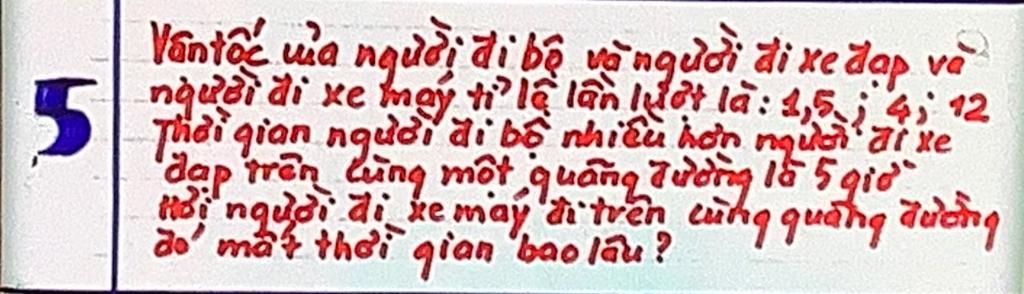 5
Vận tốc của người đi bộ và người đi xe đạp và
người đi xe máy tỉ lệ lần lượt là: 1,5; 4; 12
Thời gian người đi bộ nhiều hơn người đi xe
đạp trên cùng một quãng đường là 5 giờ
Hỏi người đi xe máy đi trên cùng quãng đường
đó mất thời gian bao lâu?